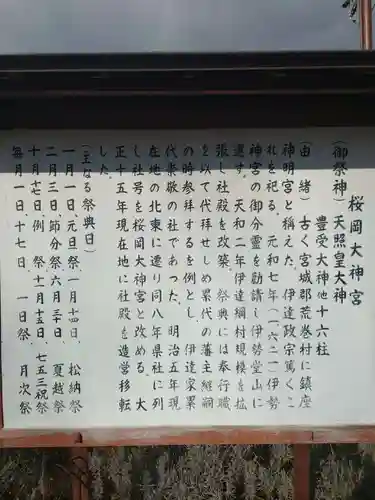 桜岡大神宮
(御祭神) 天照皇大神
豊受大神他十六柱
(由 緒) 古く宮城郡荒巻村に鎮座
神明宮と称えた。伊達政宗篤くこ
れを祀る。元和七年(一六二一)伊勢
神宮の御分霊を勧請し伊勢堂山に
遷す。天和二年伊達綱村規模を拡
張し社殿を改築。祭典には奉行職
を以て代拝せしめ累代の藩主継嗣
の時参拝するを例とし、伊達家累
代崇敬の社であった。明治五年現
在地の北東に遷り同八年県社に列
し社号を桜岡大神宮と改める。大
正十五年現在地に社殿を造営移転
した。
(主なる祭典日)
一月一日、元旦祭 一月十四日、 松納祭
二月三日、節分祭 六月三十日、 夏越祭
十月十七日、例 祭 十一月十五日、七五三祝祭
毎月一日、十七日、 一日祭、 月次祭